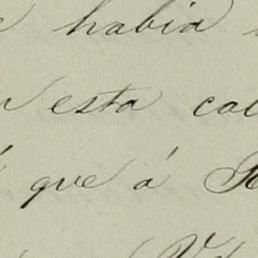 habia
esta cal
que á